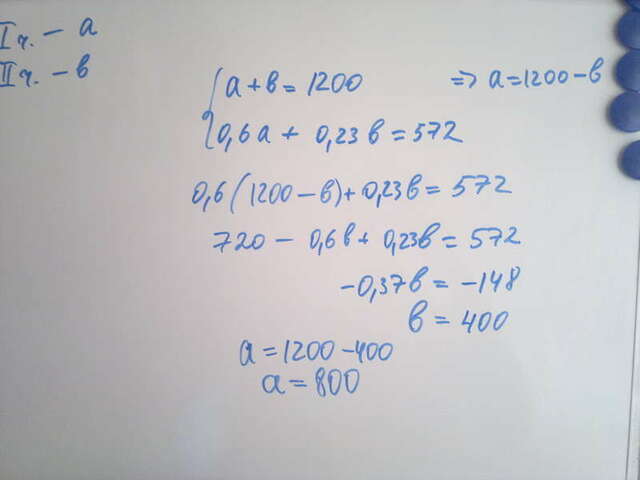 I ч. – а
II ч. – в
а + в = 1200 => а = 1200 – в
0,6а + 0,23в = 572
0,6(1200 – в) + 0,23в = 572
720 – 0,6в + 0,23в = 572
–0,37в = –148
в = 400
а = 1200 – 400
а = 800